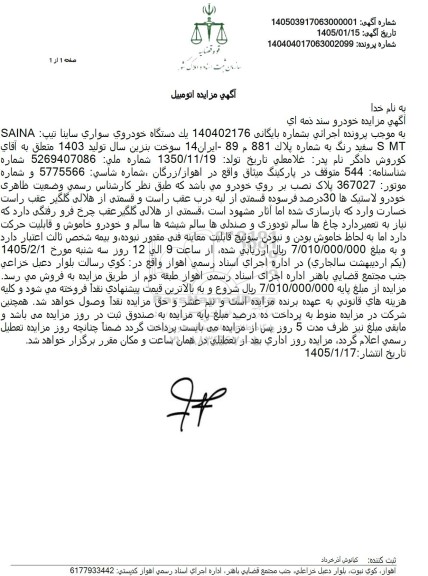 شماره آگهي: 140503917063000001
تاریخ آگهي: 1405/01/15
شماره پرونده: 140404017063002099
قوه قضائیه
سازمان ثبت اسناد و املاک کشور
صفحه 1 از 1
آگهي مزايده اتومبيل
به نام خدا
آگهي مزايده خودرو سند ذمه اي
به موجب پرونده اجرائي بشماره بايگاني 140402176 يك دستگاه خودروي سواري ساينا تيپ: SAINA
S MT سفيد رنگ به شماره پلاك 881 م 89 -ايران14 سوخت بنزين سال توليد 1403 متعلق به آقاي
كوروش دادگر نام پدر: غلامعلي تاريخ تولد: 1350/11/19 شماره ملي: 5269407086 شماره
شناسنامه: 544 متوقف در پاركينگ ميثاق واقع در اهواز/زرگان ،شماره شاسي: 5775566 و شماره
موتور: 367027 پلاک نصب بر روي خودرو مي باشد كه طبق نظر كارشناس رسمي وضعيت ظاهري
خودرو لاستيك ها 30درصد فرسوده قسمتي از لبه درب عقب راست و قسمتي از هلالي گلگير عقب راست
خسارت وارد كه بازسازي شده اما آثار مشهود است ،قسمتي از هلالي گلگيرعقب چرخ فرو رفتگي دارد كه
نياز به تعميردارد چاغ ها سالم تودوزي و صندلي ها سالم شيشه ها سالم و خودرو خاموش و قابليت حركت
دارد اما به لحاظ خاموش بودن و نبودن سوئيچ قابليت معاينه فني مقدور نبوده،و بيمه شخص ثالث اعتبار دارد
و به مبلغ 7/010/000/000 ريال ارزيابي شده، از ساعت 9 الي 12 روز سه شنبه مورخ 1405/2/1
(يكم ارديبهشت سالجاري) در اداره اجراي اسناد رسمي اهواز واقع در: كوي رسالت بلوار دعبل خزاعي
جنب مجتمع قضايي باهنر اداره اجراي اسناد رسمي اهواز طبقه دوم از طريق مزايده به فروش مي رسد.
مزايده از مبلغ پايه 7/010/000/000 ريال شروع و به بالاترين قيمت پيشنهادي نقداً فروخته مي شود و كليه
هزينه هاي قانوني به عهده برنده مزايده است و نيم عشر و حق مزايده نقداً وصول خواهد شد. همچنين
شركت در مزايده منوط به پرداخت ده درصد مبلغ پايه مزايده به صندوق ثبت در روز مزايده مي باشد و
مابقي مبلغ نيز ظرف مدت 5 روز پس از مزايده مي بايست پرداخت گردد ضمناً چنانچه روز مزايده تعطيل
رسمي اعلام گردد، مزايده روز اداري بعد از تعطيلي در همان ساعت و مكان مقرر برگزار خواهد شد.
تاريخ انتشار:1405/1/17
ثبت كننده: كيانوش آذرخرداد
اهواز، كوي نبوت، بلوار دعبل خزاعلي، جنب مجتمع قضايي باهنر، اداره اجراي اسناد رسمي اهواز كدپستي: 6177933442